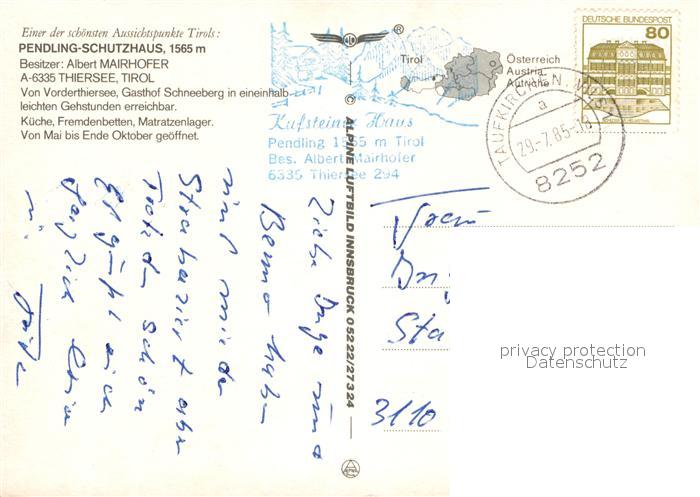 Einer der schönsten Aussichtspunkte Tirols:
PENDLING-SCHUTZHAUS, 1565 m
Besitzer: Albert MAIRHOFER
A-6335 THIERSEE, TIROL
Von Vorderthiersee, Gasthof Schneeberg in eineinhalb
leichten Gehstunden erreichbar.
Küche, Fremdenbetten, Matratzenlager.
Von Mai bis Ende Oktober geöffnet.
Kufsteiner Haus
Pendling 1565 m Tirol
Bes. Albert Mairhofer
6335 Thiersee 294
© ALPINE LUFTBILD INNSBRUCK 05222/27324
Tirol
Österreich
Austria
Autriche
DEUTSCHE BUNDESPOST
80
TAUFKIRCHEN
a
29.-7.85.-18
8252
Liebe Inge und
Benno haben
wied
Strapaziert aber
Trotzdem schön
Es grüßt
herzlich
Frau
In
Sta
3110
privacy protection
Datenschutz